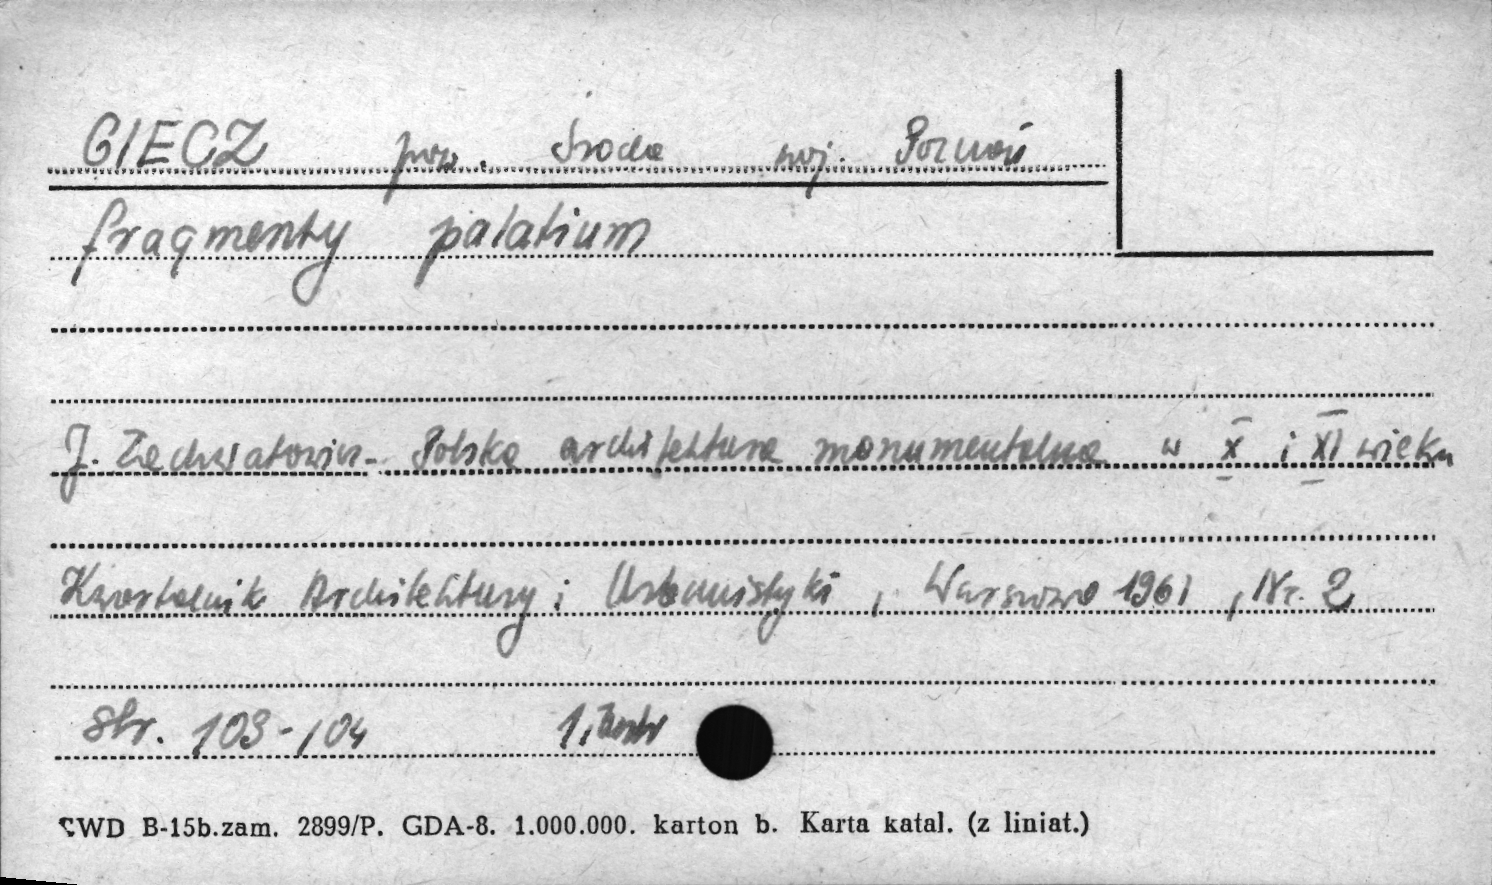 GIECZ pow. Środa woj. Poznań
fragmenty palatium
J. Zachwatowicz - Polska architektura monumentalna w X i XI wieku
Kwartalnik Architektury i Urbanistyki, Warszawa 1961, Nr. 2
str. 103-104 1,
SWD B-15b.zam. 2899/P. GDA-8. 1.000.000. karton b. Karta katal. (z liniat.)